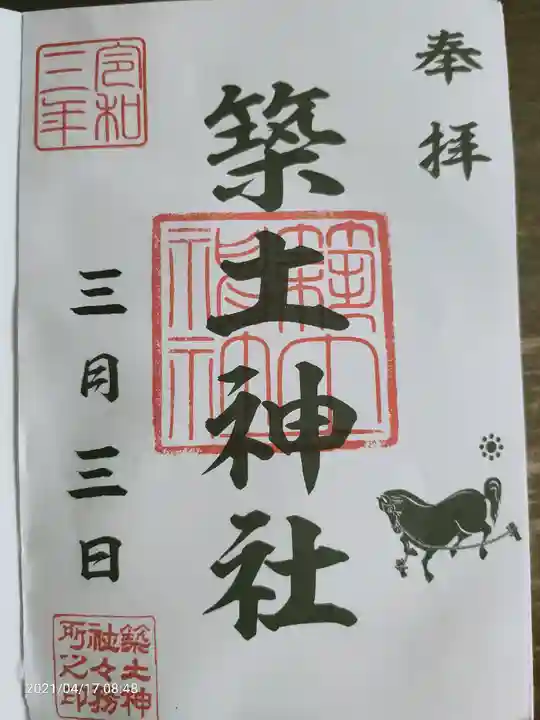 奉拝
築土神社
三月三日
令和
三年
築土神
社々務
所之印
2021/04/17 08:48